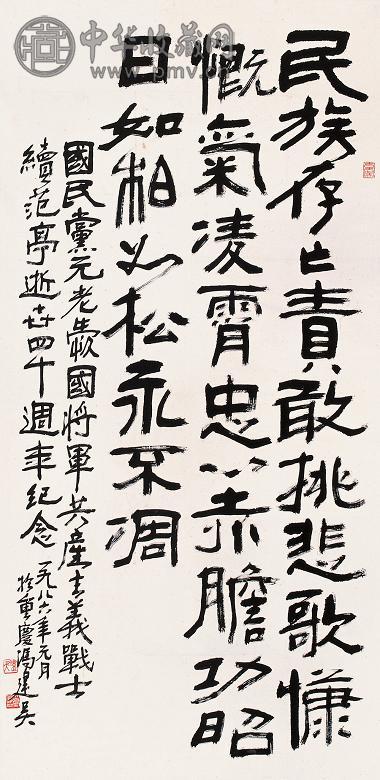 民族存亡責敢挑悲歌慷
慨氣凌霄忠心赤膽功昭
日如柏如松永不凋
國民黨元老愛國將軍共產主義戰士
續范亭逝世四十週年紀念
一九八六年元月
於重慶馮建吳
中华收藏网